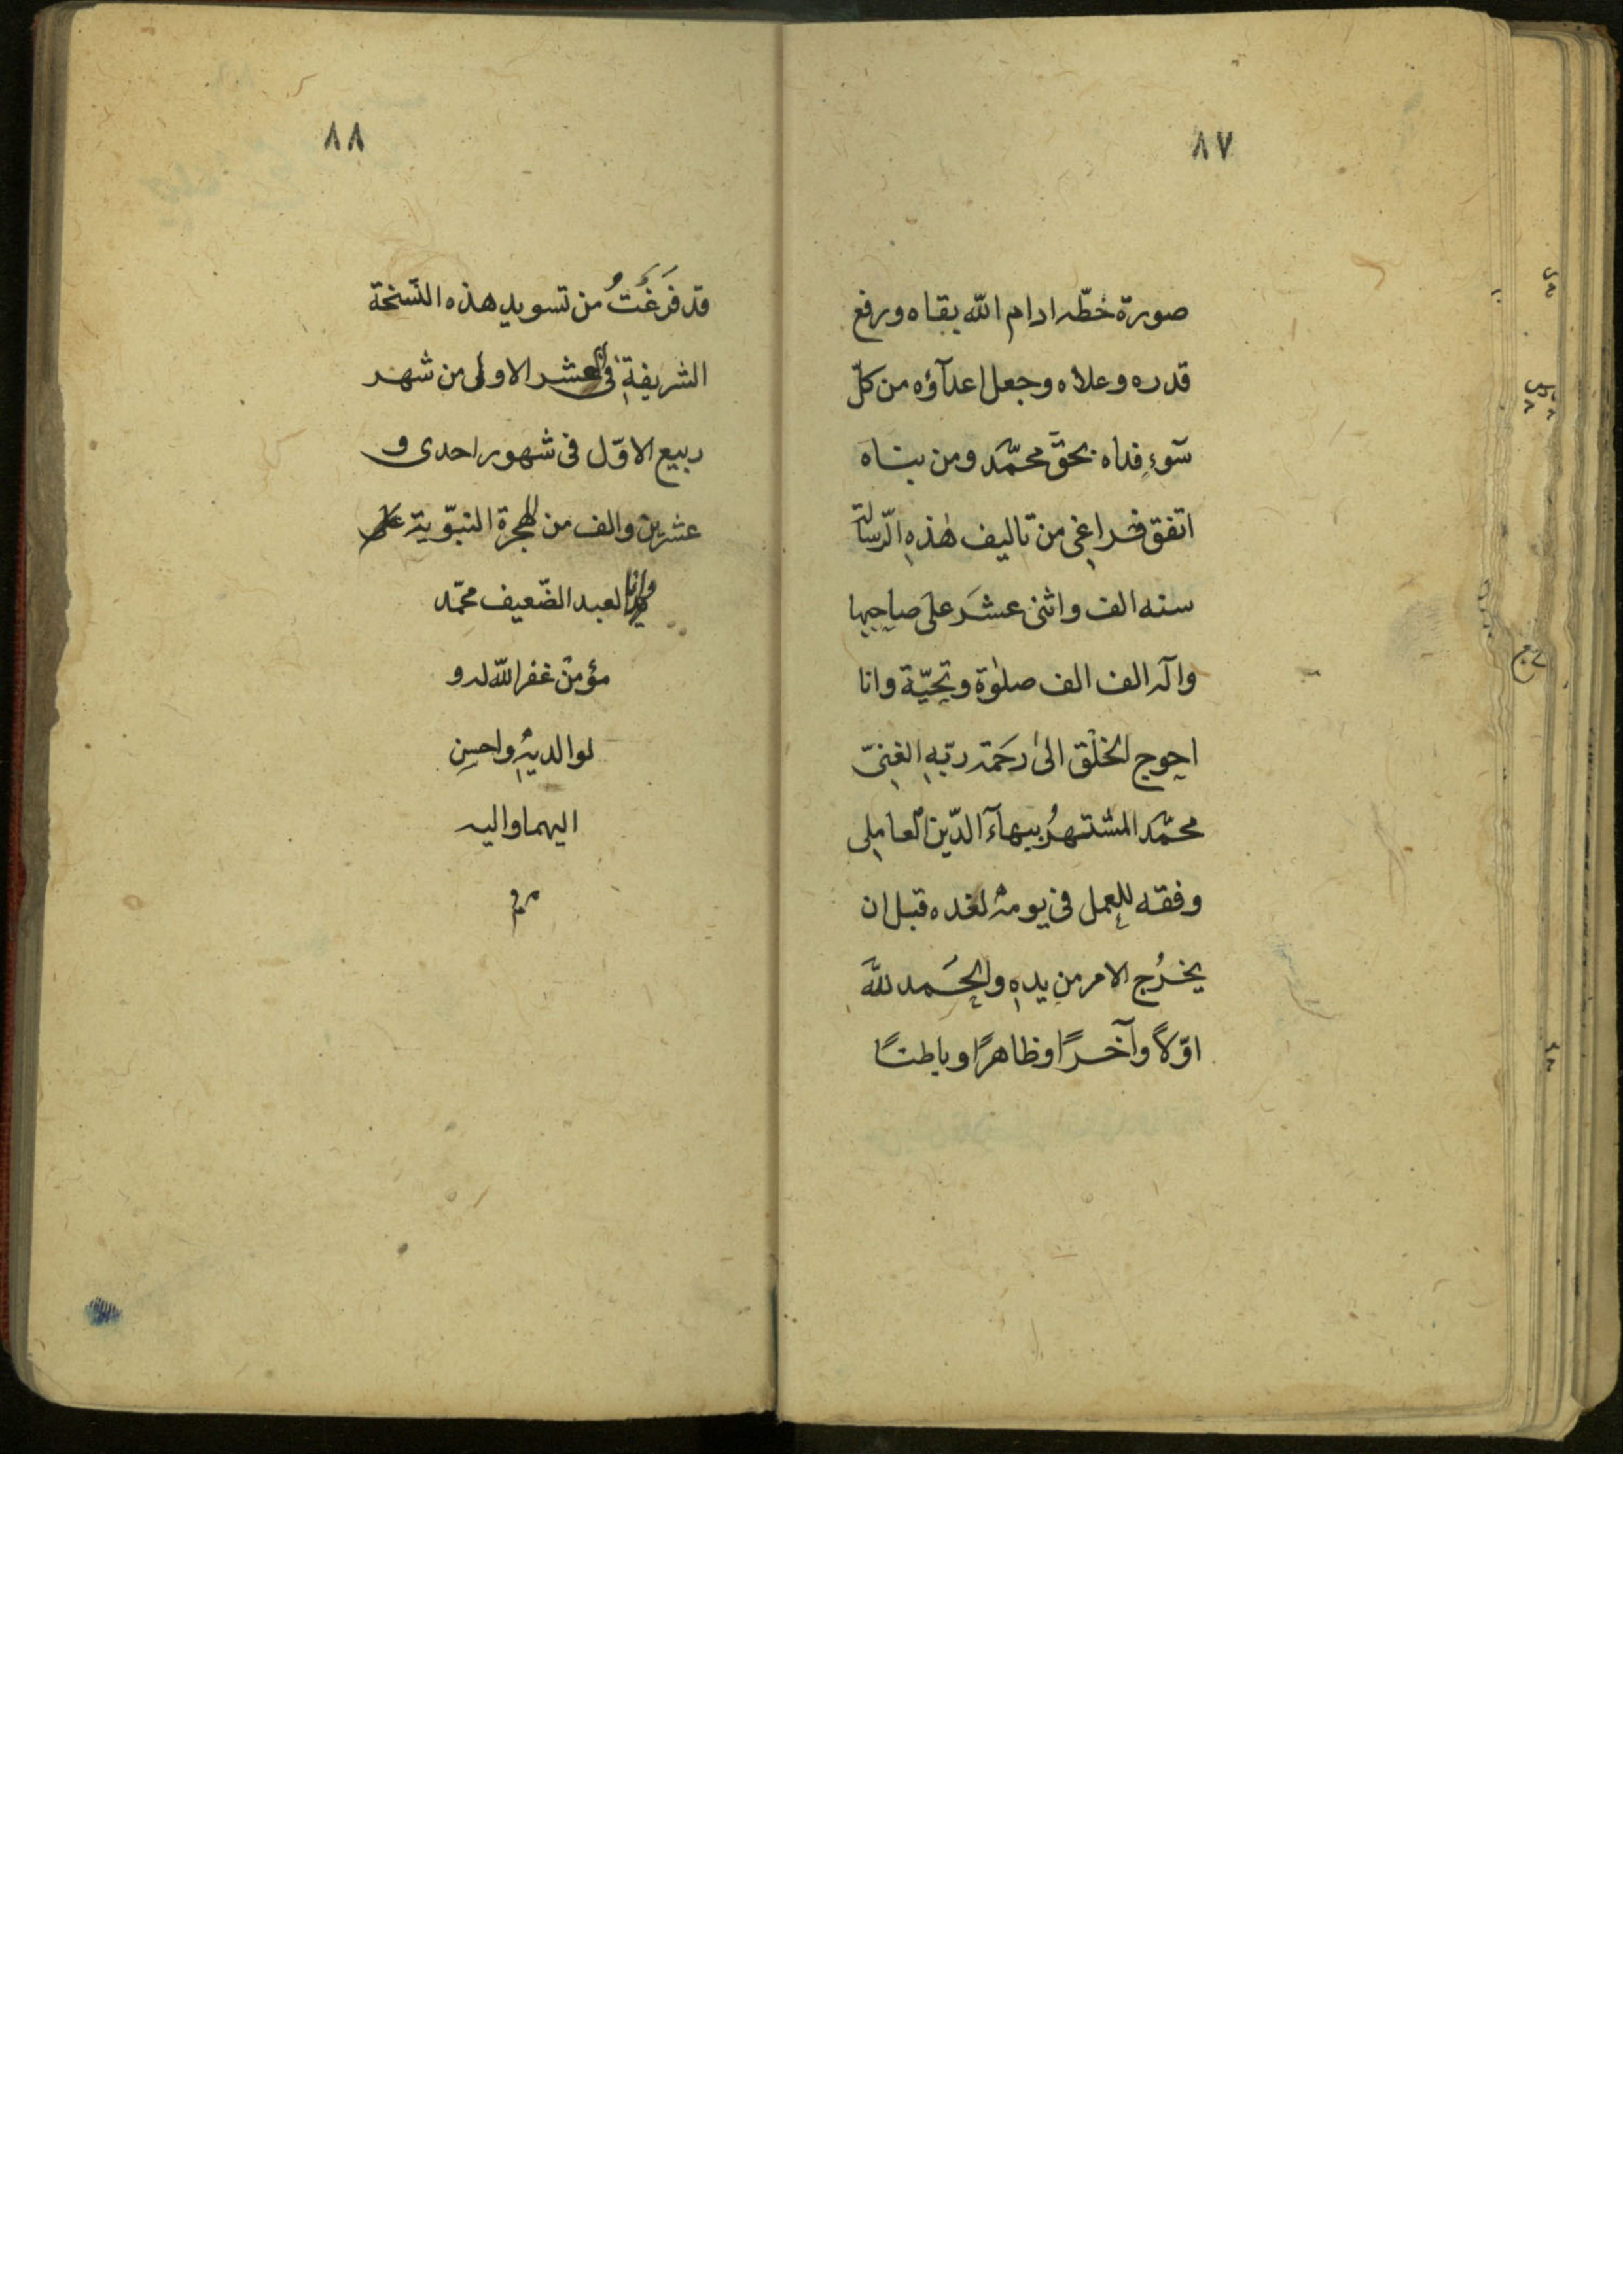 ٨٧
صورة خطّه ادام اللّه بقاه ورفع
قدره وعلاه وجعل اعدآؤه من كلّ
سَوءٍ فداه بحقّ محمّد ومن بناه
اتفق فراغى من تاليف هٰذهِ الرّسالة
سنه الف واثنى عشَر على صاحِبِها
وآله الف الف صلوٰة وتحِيّة وانا
احوج الخلْق الىٰ رَحَمة ربّهِ الغِنىّ
محمّد المشتهرُ ببهآء الدّين العامِلى
وفقه للعِمل فى يومهٖ لغده قبل ان
يخرُج الامر منِ يدهِ والحَمد للّه
اوّلاً وآخرًا وظاهرًا وباطنًا
٨٨
قد فَرَغْتُ من تسويد هذه النّسخة
الشريفةِ فى العشر الاولى من شهر
ربيع الاوّل فى شهور احدى و
عشرين والف من الهجرة النبّوية
وانا العبد الضّعيف محمّد
مؤمن غفر اللّه له و
لوالديهِٖ واحسِن
اليهما واليه